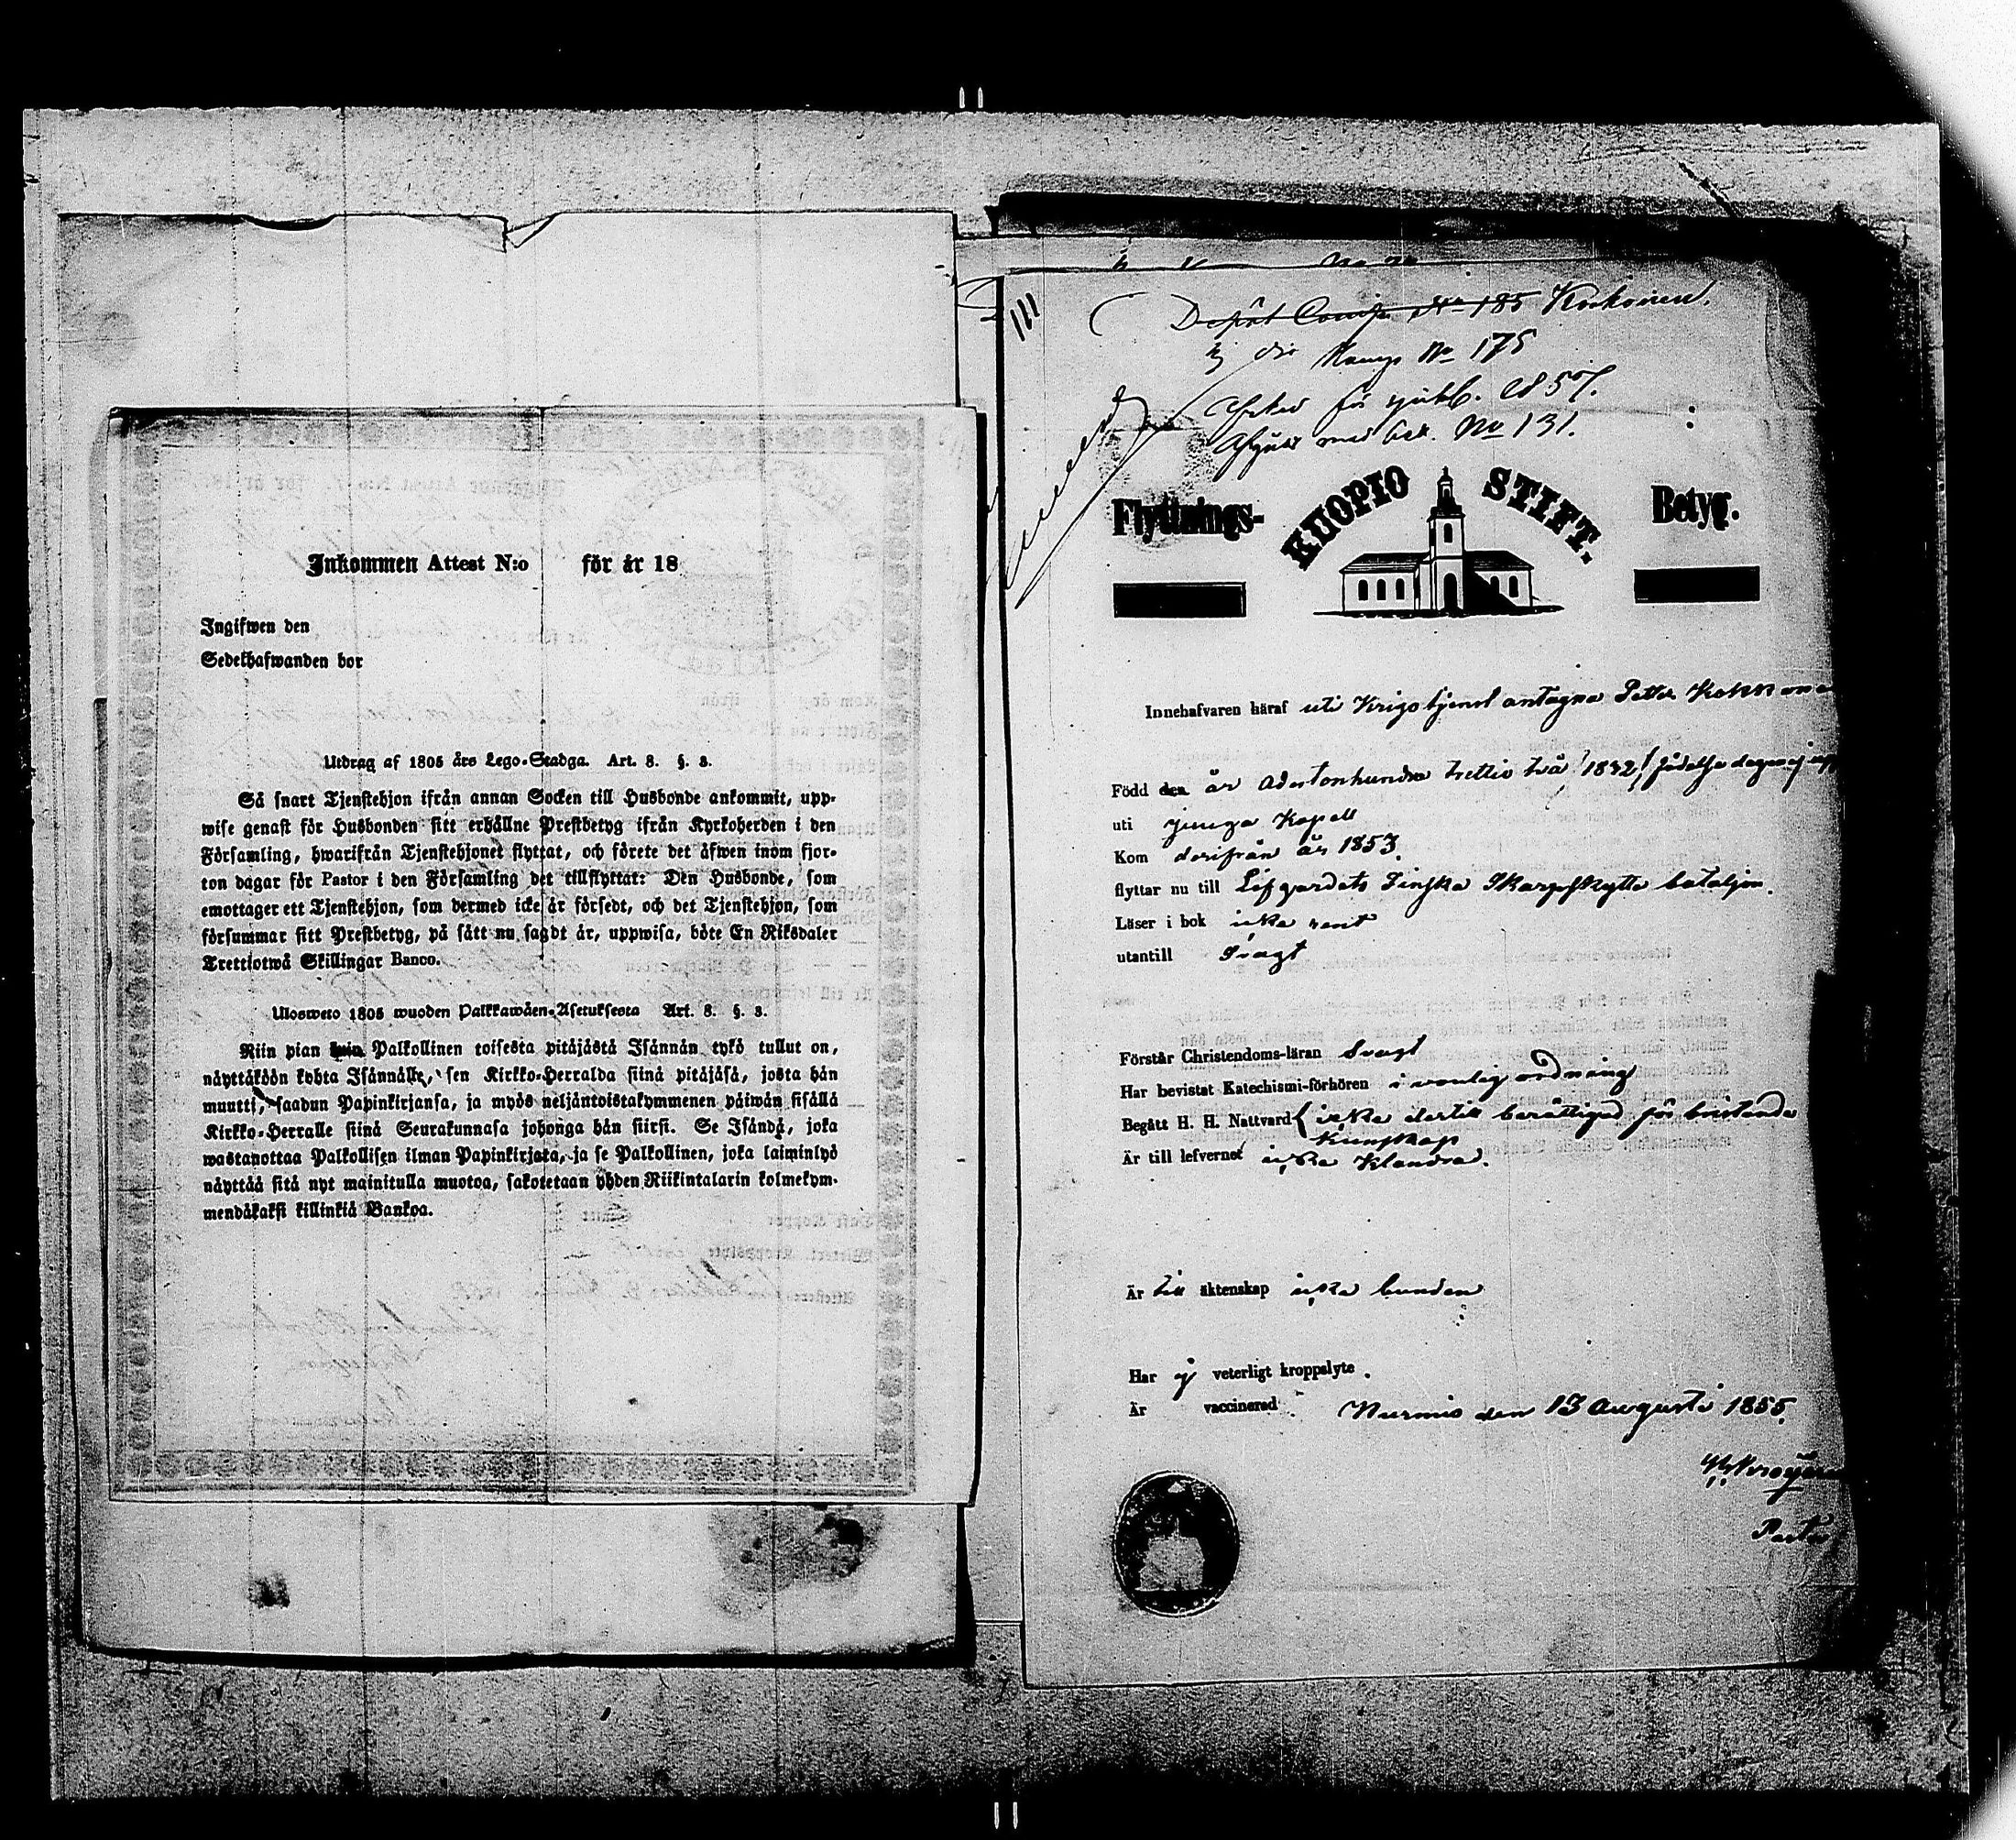 Inkommen Attest N:o för år 18
Ingifwen den
Sedelhafwanden bor
Utdrag af 1805 års Lego-Stadga. Art. 8. §. 3.
Så snart Tjenstehjon ifrån annan Socken till Husbonde ankommit, upp-
wise genast för Husbonden sitt erhållne Prestbetyg ifrån Kyrkoherden i den
Församling, hwarifrån Tjenstehjonet flyttat, och förete det äfwen inom fjor-
ton dagar för Pastor i den Församling det tillflyttat: Den Husbonde, som
emottager ett Tjenstehjon, som dermed icke är försedt, och det Tjenstehjon, som
försummar sitt Prestbetyg, på sätt nu sagdt är, uppwisa, böte En Riksdaler
Trettiotwå Skillingar Banco.
Ulosweto 1805 wuoden Palkkawäen-Asetuksesta Art. 8. §. 3.
Niin pian kuin Palkollinen toisesta pitäjästä Isännän tykö tullut on,
näyttäköön kohta Isännälle, sen Kirkko-Herralda siinä pitäjäsä, josta hän
muutti, saadun Papinkirjansa, ja myös neljäntoistakymmenen päiwän sisällä
Kirkko-Herralle siinä Seurakunnasa johonga hän siirsi. Se Isändä, joka
wastaanottaa Palkollisen ilman Papinkirjata, ja se Palkollinen, joka laiminlyö
näyttää sitä nyt mainitulla muotoa, sakotetaan yhden Riikintalarin kolmekym-
mendäkaksi killinkiä Bankoa.
111
Depôt Comp. No 185 Kokoinen.
Komp No 175
för 1857.
med bet. No 131.
Flyttnings- KUOPIO STIFT. Betyg.
Innehafvaren häraf uti Krigstjenst antagna Petter Kokkone
Född den år adertonhundra trettio två /1832/ födelse dagen ej
uti Juuga Kapell
Kom derifrån år 1853.
flyttar nu till Lifgardets Finska Skarpskytte bataljon.
Läser i bok icke rent
utantill Svagt
Förstår Christendoms-läran Svagt
Har bevistat Katechismi-förhören i vanlig ordning
Begått H. H. Nattvard icke dertill berättigad för bristande
Kunskap
Är till lefvernet icke klandrad.
Är till äktenskap icke bunden
Har ej veterligt kroppslyte.
Är vaccinerad. Nurmis den 13 Augusti 1855.